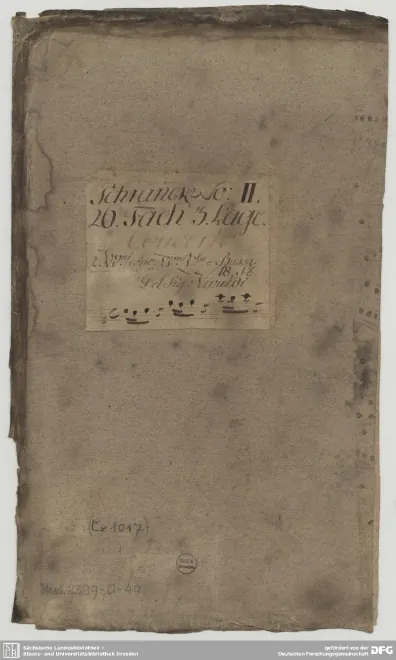 Schranck No: II.
20. Fach 3. Lage.
Concerto
Del Sig: Vivaldi
(Cx 1017)
Mus. 2389-O-40
Sächsische Landesbibliothek -
Staats- und Universitätsbibliothek Dresden
gefördert von der
Deutschen Forschungsgemeinschaft
DFG